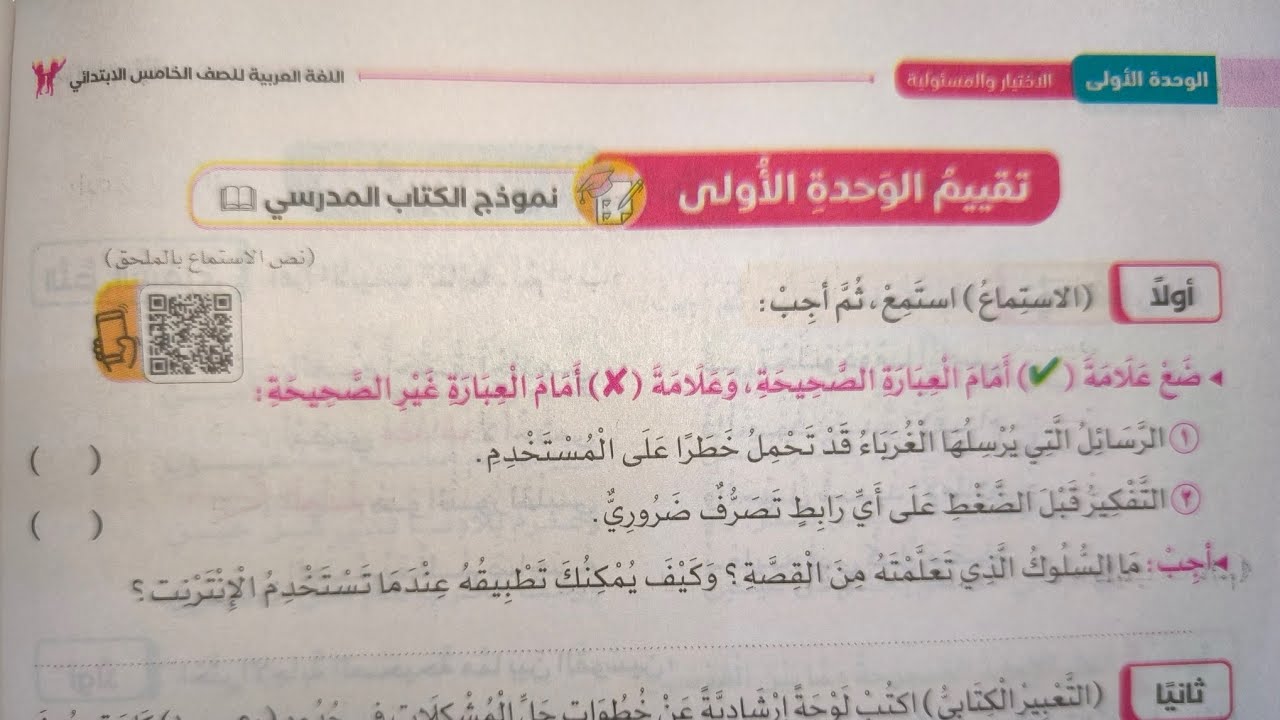 الوحدة الأولى الاختيار والمسئولية اللغة العربية للصف الخامس الابتدائي
تقييمُ الوَحدةِ الأُولى نموذج الكتاب المدرسي
(نص الاستماع بالملحق)
أولاً (الاستِماعُ) استَمِعْ، ثُمَّ أجِبْ:
◂ ضَعْ عَلَامَةَ (✔) أَمَامَ الْعِبَارَةِ الصَّحِيحَةِ، وَعَلَامَةَ (✘) أَمَامَ الْعِبَارَةِ غَيْرِ الصَّحِيحَةِ:
١ الرَّسَائِلُ الَّتِي يُرْسِلُهَا الْغُرَبَاءُ قَدْ تَحْمِلُ خَطَرًا عَلَى الْمُسْتَخْدِمِ. ( )
٢ التَّفْكِيرُ قَبْلَ الضَّغْطِ عَلَى أَيِّ رَابِطٍ تَصَرُّفٌ ضَرُورِيٌّ. ( )
◂أجِبْ: مَا السُّلُوكُ الَّذِي تَعَلَّمْتَهُ مِنَ الْقِصَّةِ؟ وَكَيْفَ يُمْكِنُكَ تَطْبِيقُهُ عِنْدَمَا تَسْتَخْدِمُ الْإِنْتَرْنِت؟
ثانيًا (التَّعْبِيرُ الْكِتَابِيُّ) اكْتُبْ لَوْحَةً إِرْشَادِيَّةً عَنْ خُطُوَاتِ حَلِّ الْمُشْكِلَاتِ فِي